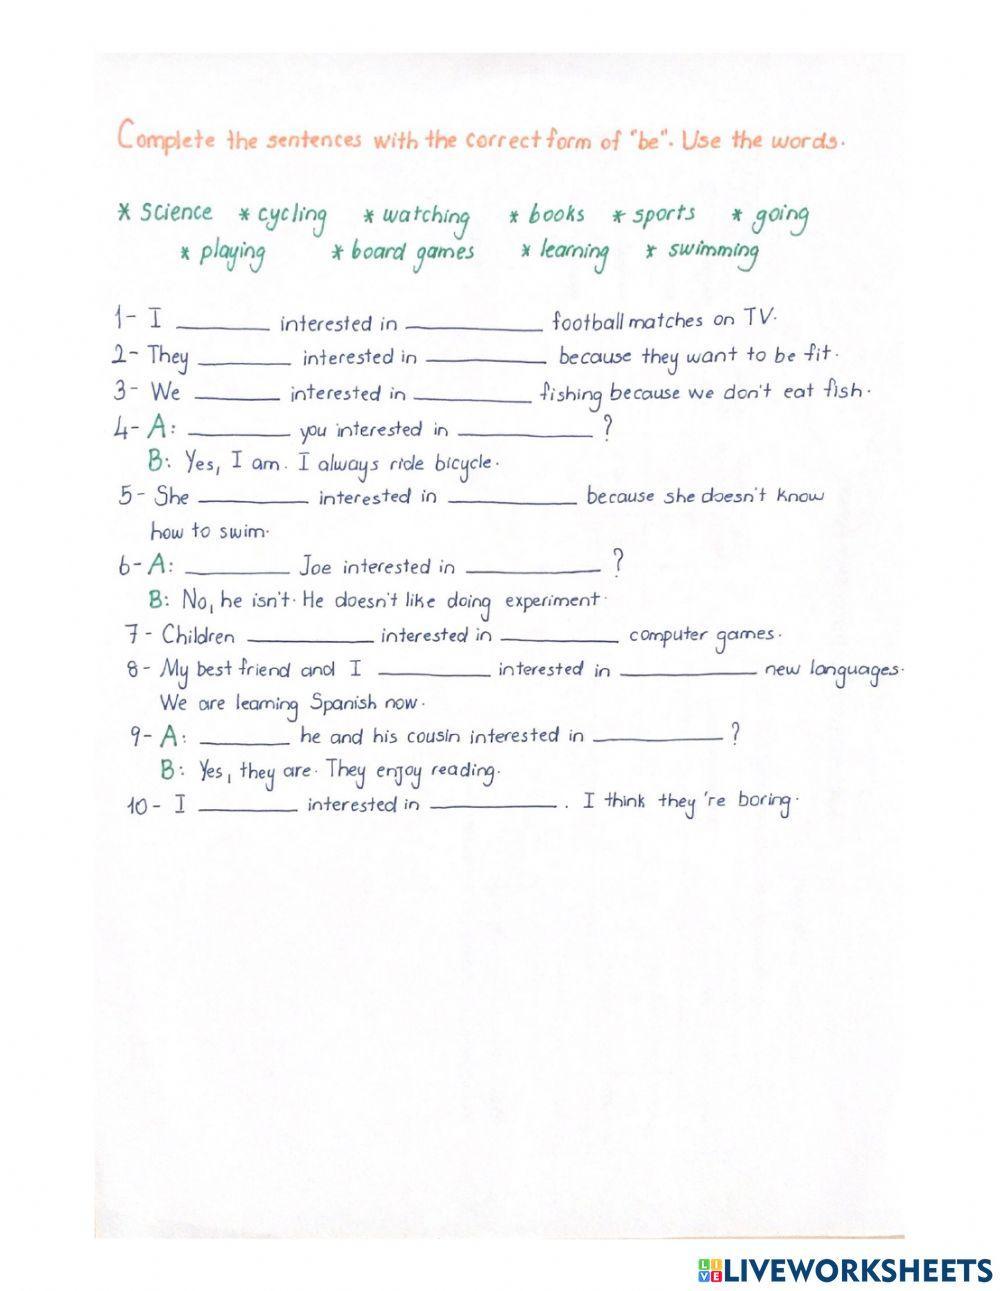 Complete the sentences with the correct form of "be". Use the words.
* science * cycling * watching * books * sports * going
* playing * board games * learning * swimming
1- I ________ interested in ____________ football matches on TV.
2- They ________ interested in ____________ because they want to be fit.
3- We ________ interested in ____________ fishing because we don't eat fish.
4- A: __________ you interested in ____________ ?
B: Yes, I am. I always ride bicycle.
5- She __________ interested in ____________ because she doesn't know
how to swim.
6- A: __________ Joe interested in ____________ ?
B: No, he isn't. He doesn't like doing experiment.
7- Children ____________ interested in ____________ computer games.
8- My best friend and I __________ interested in ____________ new languages.
We are learning Spanish now.
9- A: ________ he and his cousin interested in ____________ ?
B: Yes, they are. They enjoy reading.
10- I __________ interested in ____________ . I think they're boring.
LIVEWORKSHEETS